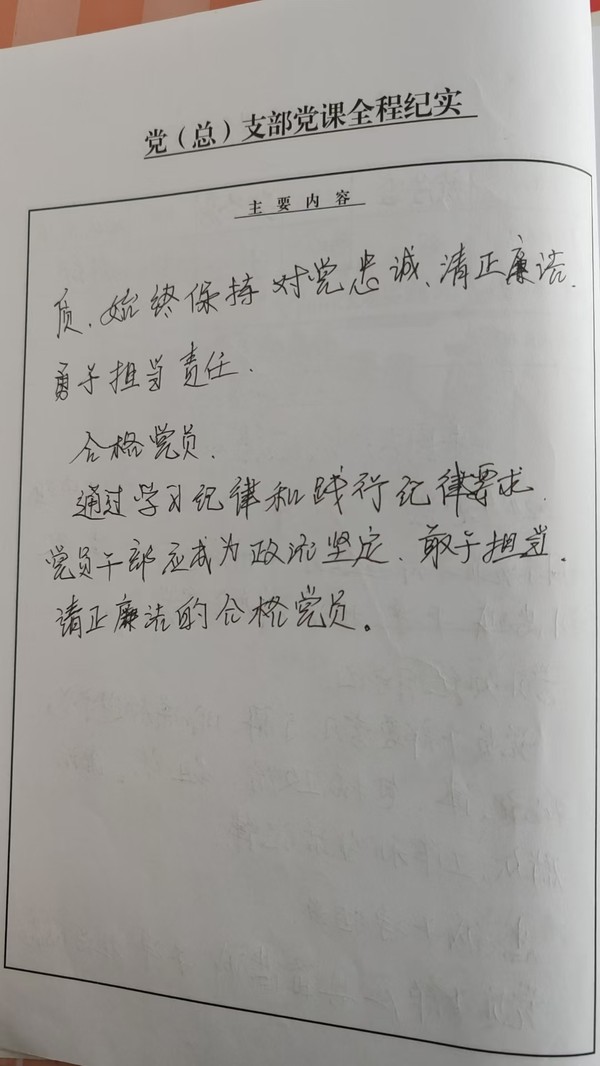 党（总）支部党课全程纪实
主要内容
质、始终保持对党忠诚、清正廉洁、
勇于担当责任.
合格党员.
通过学习纪律和践行纪律要求.
党员干部应成为政治坚定、敢于担当、
清正廉洁的合格党员。